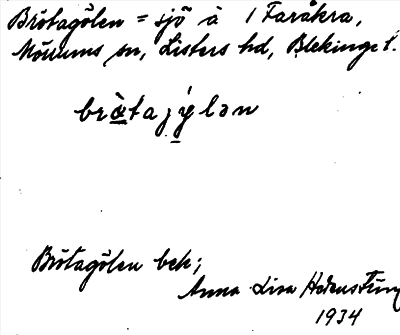 Brötagölen = sjö å 1 Faråkra,
Mörrums sn, Listers hd, Blekinge l.
bræ̀tajý̱lən
Brötagölen bek;
Anna Lisa
1934